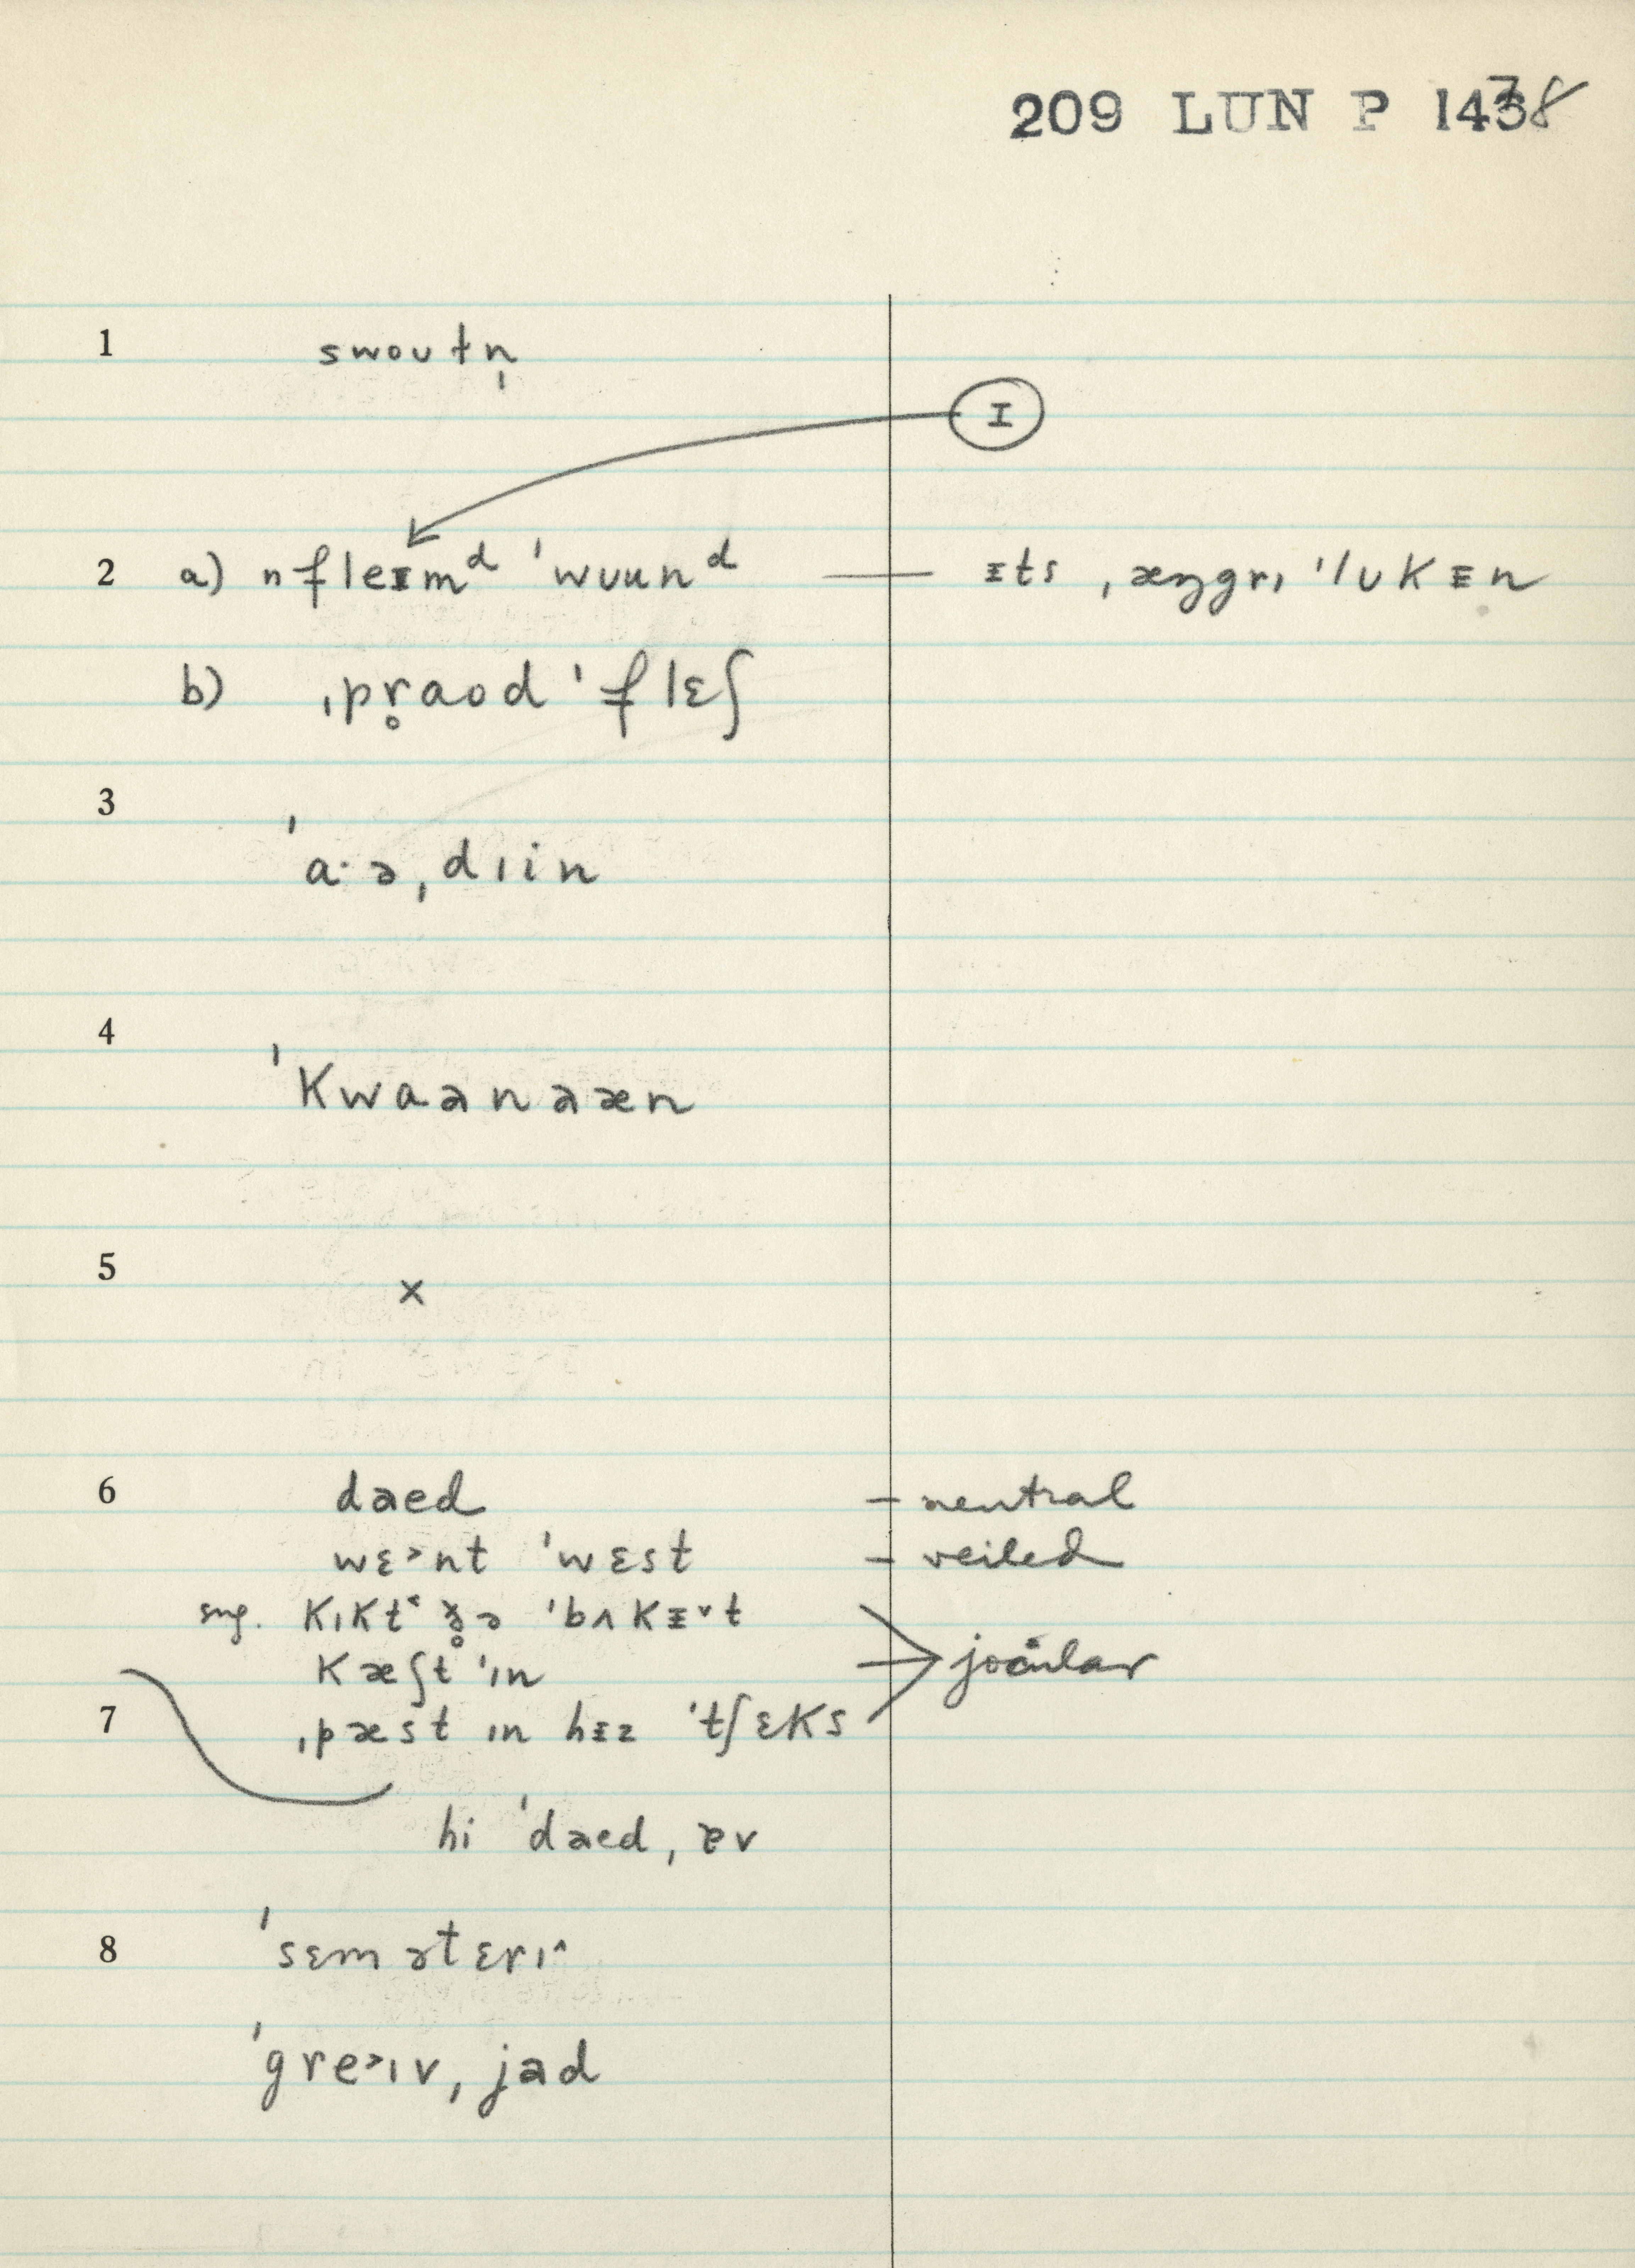 209 LUN P 1438
1 swoutn̩
I
2 a) nfleᵻmᵈ ˈwuunᵈ — ᵻts ˌæŋgrɪ ˈlʊkᵻn
b) ˌpr̥aod ˈflɛʃ
3 ˈa·əˌdɪin
4 ˈkwaənəæn
5 x
6 dɛed – neutral
wɛ˃nt ˈwɛst – veiled
sug. kɪkt˂ ðə ˈbʌkᵻ˅t
kæʃt ˈɪn jocular
7 ˌpæst ɪn hᵻz ˈtʃɛks
hi ˈdɛedˌɐv
8 ˈsɛmətɛrɪ˄
ˈgre˃ɪvˌjad